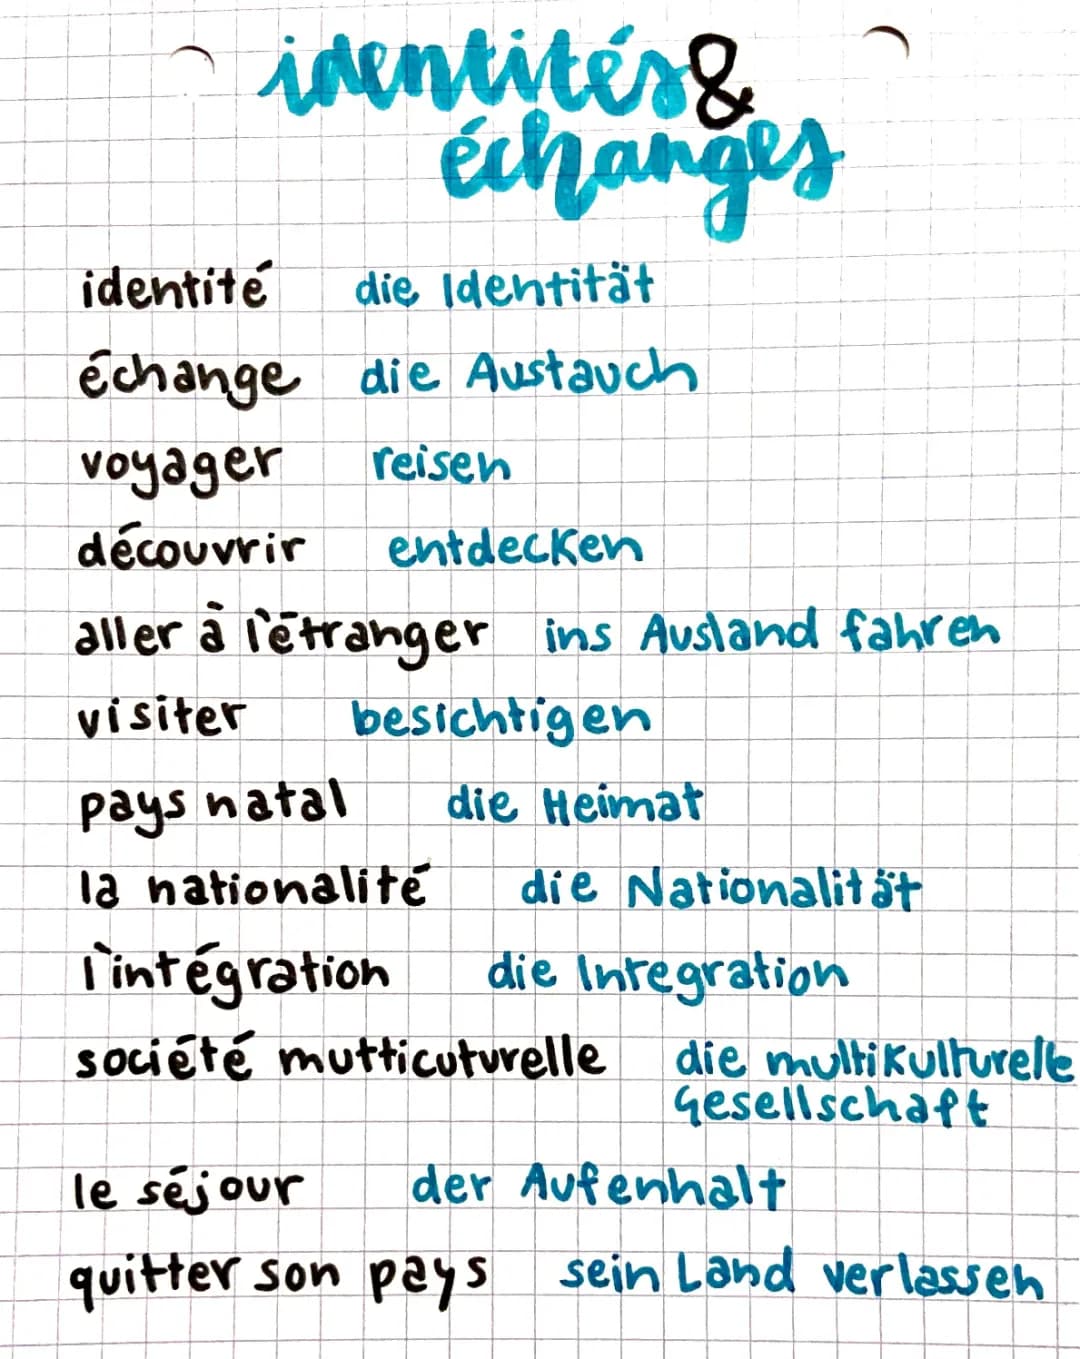 identités &
échanges
identité die Identität
échange die Austauch
voyager reisen
découvrir entdecken
aller à l'étranger ins Ausland fahren
visiter besichtigen
pays natal die Heimat
la nationalité die Nationalität
l'intégration die Integration
société mutticuturelle die multikulturelle
Gesellschaft
le séjour der Aufenhalt
quitter son pays sein Land verlassen